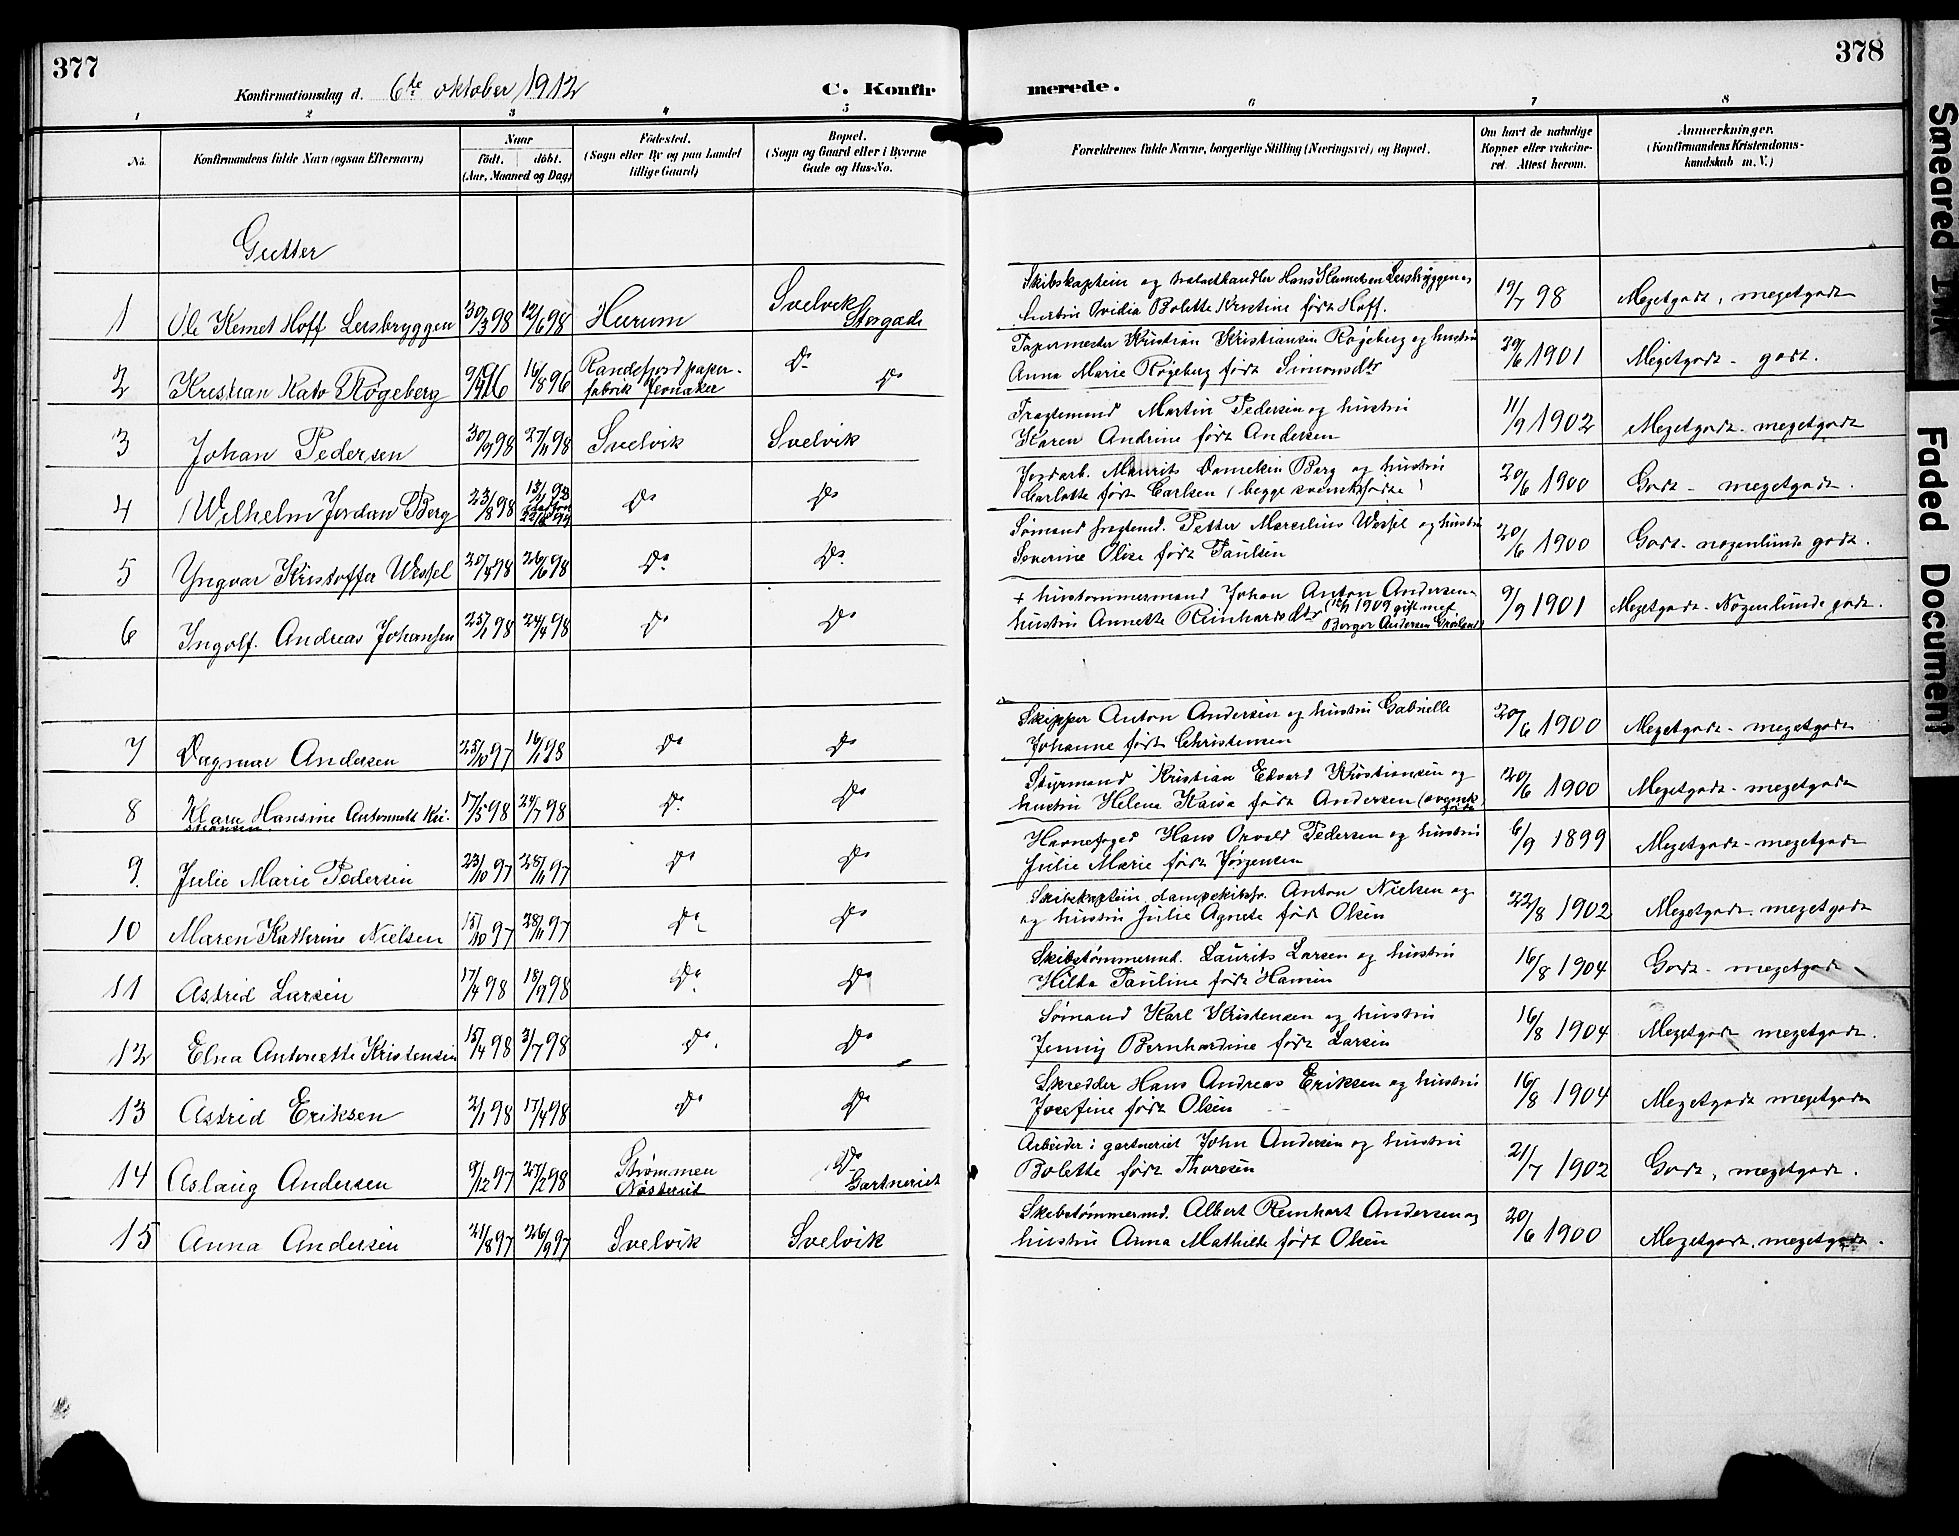 377
378
Konfirmationsdag d. 6te oktober 1912
C. Konfir
merede.
1 2 3 4 5 6 7 8
No.
Konfirmandens fulde Navn (ogsaa Efternavn)
Naar
født. døbt.
(Aar, Maaned og Dag)
Fødested.
(Sogn eller By og paa Landet
tillige Gaard)
Bopæl.
(Sogn og Gaard eller i Byerne
Gade og Hus-No.
Forældrenes fulde Navne, borgerlige Stilling (Næringsvei) og Bopæl.
Om havt de naturlige
Kopper eller vakcine-
ret. Attest herom.
Anmærkninger.
(Konfirmandens Kristendoms-
kundskab m. V.)
Gutter
1 Ole Kemet Hoff Lersbryggen 30/3 98 12/6 98 Hurum Svelvik Storgade
Skibskaptein og Hans Klemetsen Lersbryggen og
hustru Ovidia Bolette Kristine født Hoff. 19/7 98 Megetgodt, megetgodt
2 Kristian Kato Røgeberg 16/8 96 Randsfjord paper-
fabrik Jevnaker Do Do
Papermester Kristian Kristiansen Røgeberg og hustru
Anna Marie Røgeberg født Simonsdtr 20/6 1901 Megetgodt - godt.
3 Johan Pedersen 30/9 98 27/11 98 Svelvik Svelvik
Fragtemand Martin Pedersen og hustru
Karen Andrine født Andersen 11/9 1902 Megetgodt - megetgodt
4 Wilhelm Jordan Berg 23/8 98 Do Do
Jordarb. Maurits Berg og hustru
Carlotte født Carlsen (begge svenskfødte) 20/6 1900 Godt - megetgodt.
5 Yngvar Kristoffer Wessel 20/4 98 26/6 98 Do Do
Sømand fragtemd. Petter Marcelius Wessel og hustru
Severine Olise født Paulsen 20/6 1900 Godt - nogenlunde godt.
6 Ingolf. Andreas Johansen 25/1 98 24/4 98 Do Do
+ hustømmermand Johan Anton Andersen
hustru Annette Reinhardsdtr 1909 gift med
Borger Andersen 9/9 1901 Megetgodt - Nogenlunde godt.
7 Dagmar Andersen 25/10 97 16/1 98 Do Do
Skipper Anton Andersen og hustru Gabrielle
Johanne født Christensen 20/6 1900 Megetgodt - megetgodt
8 Klara Hansine Antonette Kri-
stiansen. 17/5 98 24/7 98 Do Do
Styrmand Kristian Edvard Kristiansen og
hustru Helena Kaisa født Andersen (svensk
født) 20/6 1900 Megetgodt - megetgodt
9. Julie Marie Pedersen 23/10 97 28/11 97 Do Do
Havnefoged Hans Osvald Pedersen og hustru
Julie Marie født Jørgensen 6/9 1899 Megetgodt - megetgodt
10 Maren Kathrine Nielsen 15/10 97 28/11 97 Do Do
Skibskaptein, dampskibsf. Anton Nielsen og
og hustru Julie Agnete født Olsen 22/8 1902 Megetgodt - megetgodt
11 Astrid Larsen 17/4 98 18/9 98 Do Do
Skibstømmermd. Laurits Larsen og hustru
Hilda Pauline født Hansen 16/8 1904 Godt - megetgodt
12 Elna Antonette Kristensen 15/4 98 31/7 98 Do Do
Sømand Karl Kristensen og hustru
Jenny Bernhardine født Larsen 16/8 1904 Megetgodt megetgodt.
13 Astrid Eriksen 2/1 98 17/4 98 Do Do
Skredder Hans Andreas Eriksen og hustru
Josefine født Olsen 16/8 1904 Megetgodt megetgodt
14 Aslaug Andersen 9/12 97 27/2 98 Strømmen
Nøsteriet Do Gartneriet
Arbeider i gartneriet John Andersen og hustru
Bolette født Thoresen 21/7 1902 Godt, megetgodt.
15 Anna Andersen 21/8 97 26/9 97 Svelvik Svelvik
Skibstømmermd. Albert Reinhart Andersen og
hustru Anna Mathilde født Olsen 20/6 1900 Megetgodt, megetgodt.
Smeared Ink
Faded Document